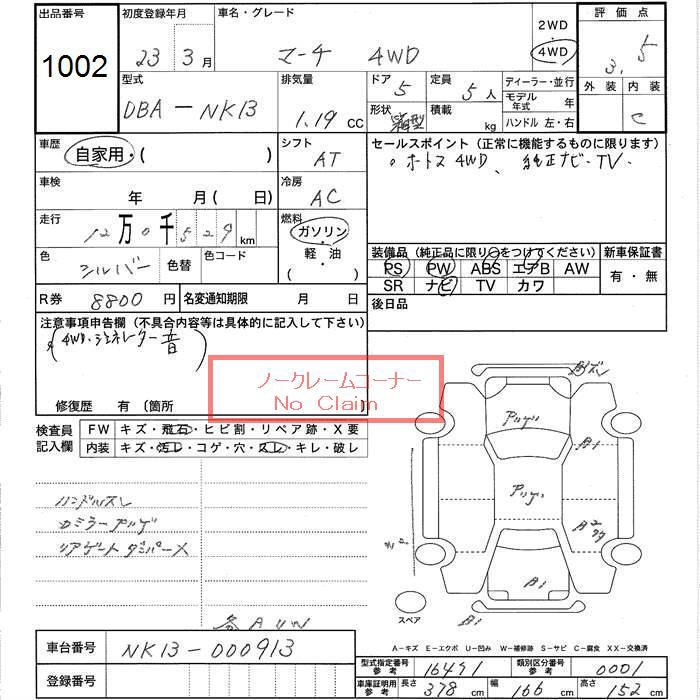 出品番号 初度登録年月 車名・グレード 2WD 評価点
1002 23 3月 マーチ 4WD 4WD 3.5
型式 排気量 ドア 5 定員 5人 ディーラー・並行 外装 内装
DBA-NK13 1.19 CC 形状 箱型 積載 kg モデル年式 年 C
ハンドル 左・右
車歴 自家用・( ) シフト AT セールスポイント (正常に機能するものに限ります)
オートス4WD、純正ナビ・TV.
車検 年 月( 日) 冷房 AC
走行 12万0千529 km 燃料 ガソリン・軽・油 ( )
色 シルバー 色替 色コード
装備品 (純正品に限り○をつけてください) 新車保証書
PS PW ABS エアB AW 有・無
SR ナビ TV カワ
R券 8800円 名変通知期限 月 日
後日品
注意事項申告欄 (不具合内容等は具体的に記入して下さい)
(4WD・ジェネレター音)
ノークレームコーナー
No Claim
修復歴 有 (箇所
検査員記入欄 FW キズ・飛石・ヒビ割・リペア跡・X要
内装 キズ・汚レ・コゲ・穴・スレ・キレ・破レ
ハンドルスレ
Dミラーアリゲ
リアゲートダンパーX
各Aリヘ
A1
A1
A1
スペア
A-キズ E-エクボ U-凹み W-補修跡 S-サビ C-腐食 XX-交換済
車台番号 NK13-000913
登録番号
型式指定番号 参考 16491 類別区分番号 参考 0001
車庫証明用 参考 長さ 378 cm 幅 166 cm 高さ 152 cm